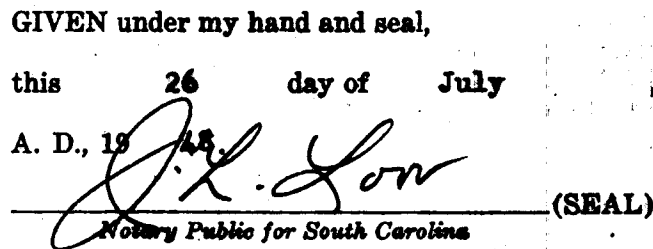 GIVEN under my hand and seal,
this 26 day of July
A. D., 19 48.
J. L. Love
(SEAL)
Notary Public for South Carolina